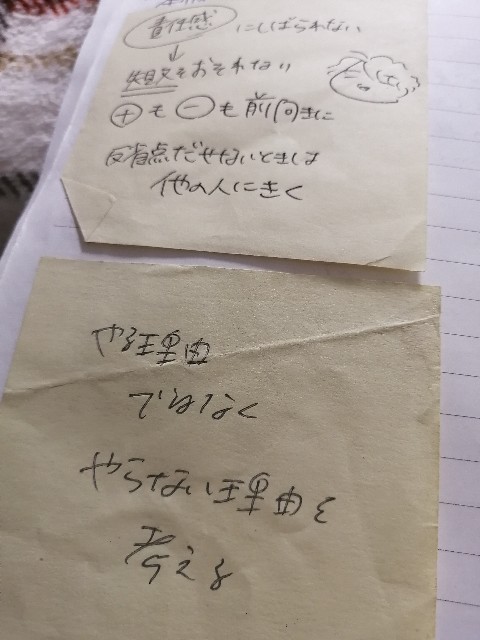 責任感 にしばられない
↓
失敗をおそれない
⊕も⊖も前向きに
反省点だせないときは
他の人にきく
やる理由
ではなく
やらない理由を
考える